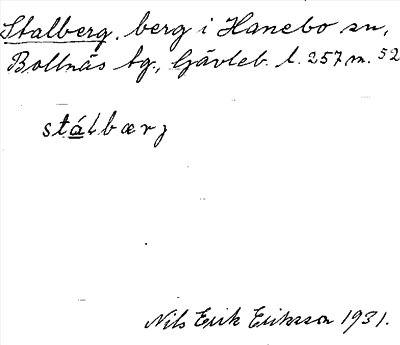 Stalberg, berg i Hanebo sn,
Bollnäs tg., Gävleb. l. 257 m. 52
stálbærj
Nils Erik Eriksson 1931.